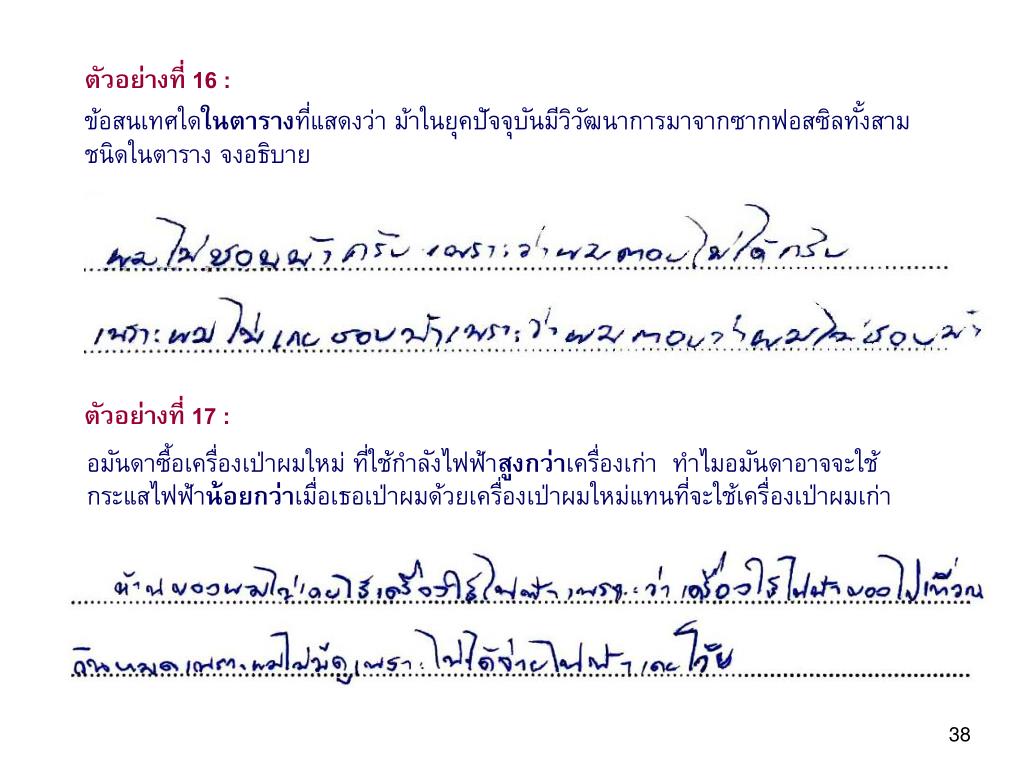 ตัวอย่างที่ 16 :
ข้อสนเทศใดในตารางที่แสดงว่า ม้าในยุคปัจจุบันมีวิวัฒนาการมาจากซากฟอสซิลทั้งสาม
ชนิดในตาราง จงอธิบาย
ผมไม่ชอบม้าครับ เพราะว่าผมตอบไม่ได้ครับ
เพราะผมไม่เคยชอบม้าเพราะว่าผมตอบว่าผมไม่ชอบม้า
ตัวอย่างที่ 17 :
อมันดาซื้อเครื่องเป่าผมใหม่ ที่ใช้กำลังไฟฟ้าสูงกว่าเครื่องเก่า ทำไมอมันดาอาจจะใช้
กระแสไฟฟ้าน้อยกว่าเมื่อเธอเป่าผมด้วยเครื่องเป่าผมใหม่แทนที่จะใช้เครื่องเป่าผมเก่า
บ้านของผมไม่เคยใช้เครื่องใช้ไฟฟ้าเพราะว่าเครื่องใช้ไฟฟ้าของ
หมดเพราะผมไม่มีดูเพราะไม่ได้จ่ายไฟฟ้าเลย
38